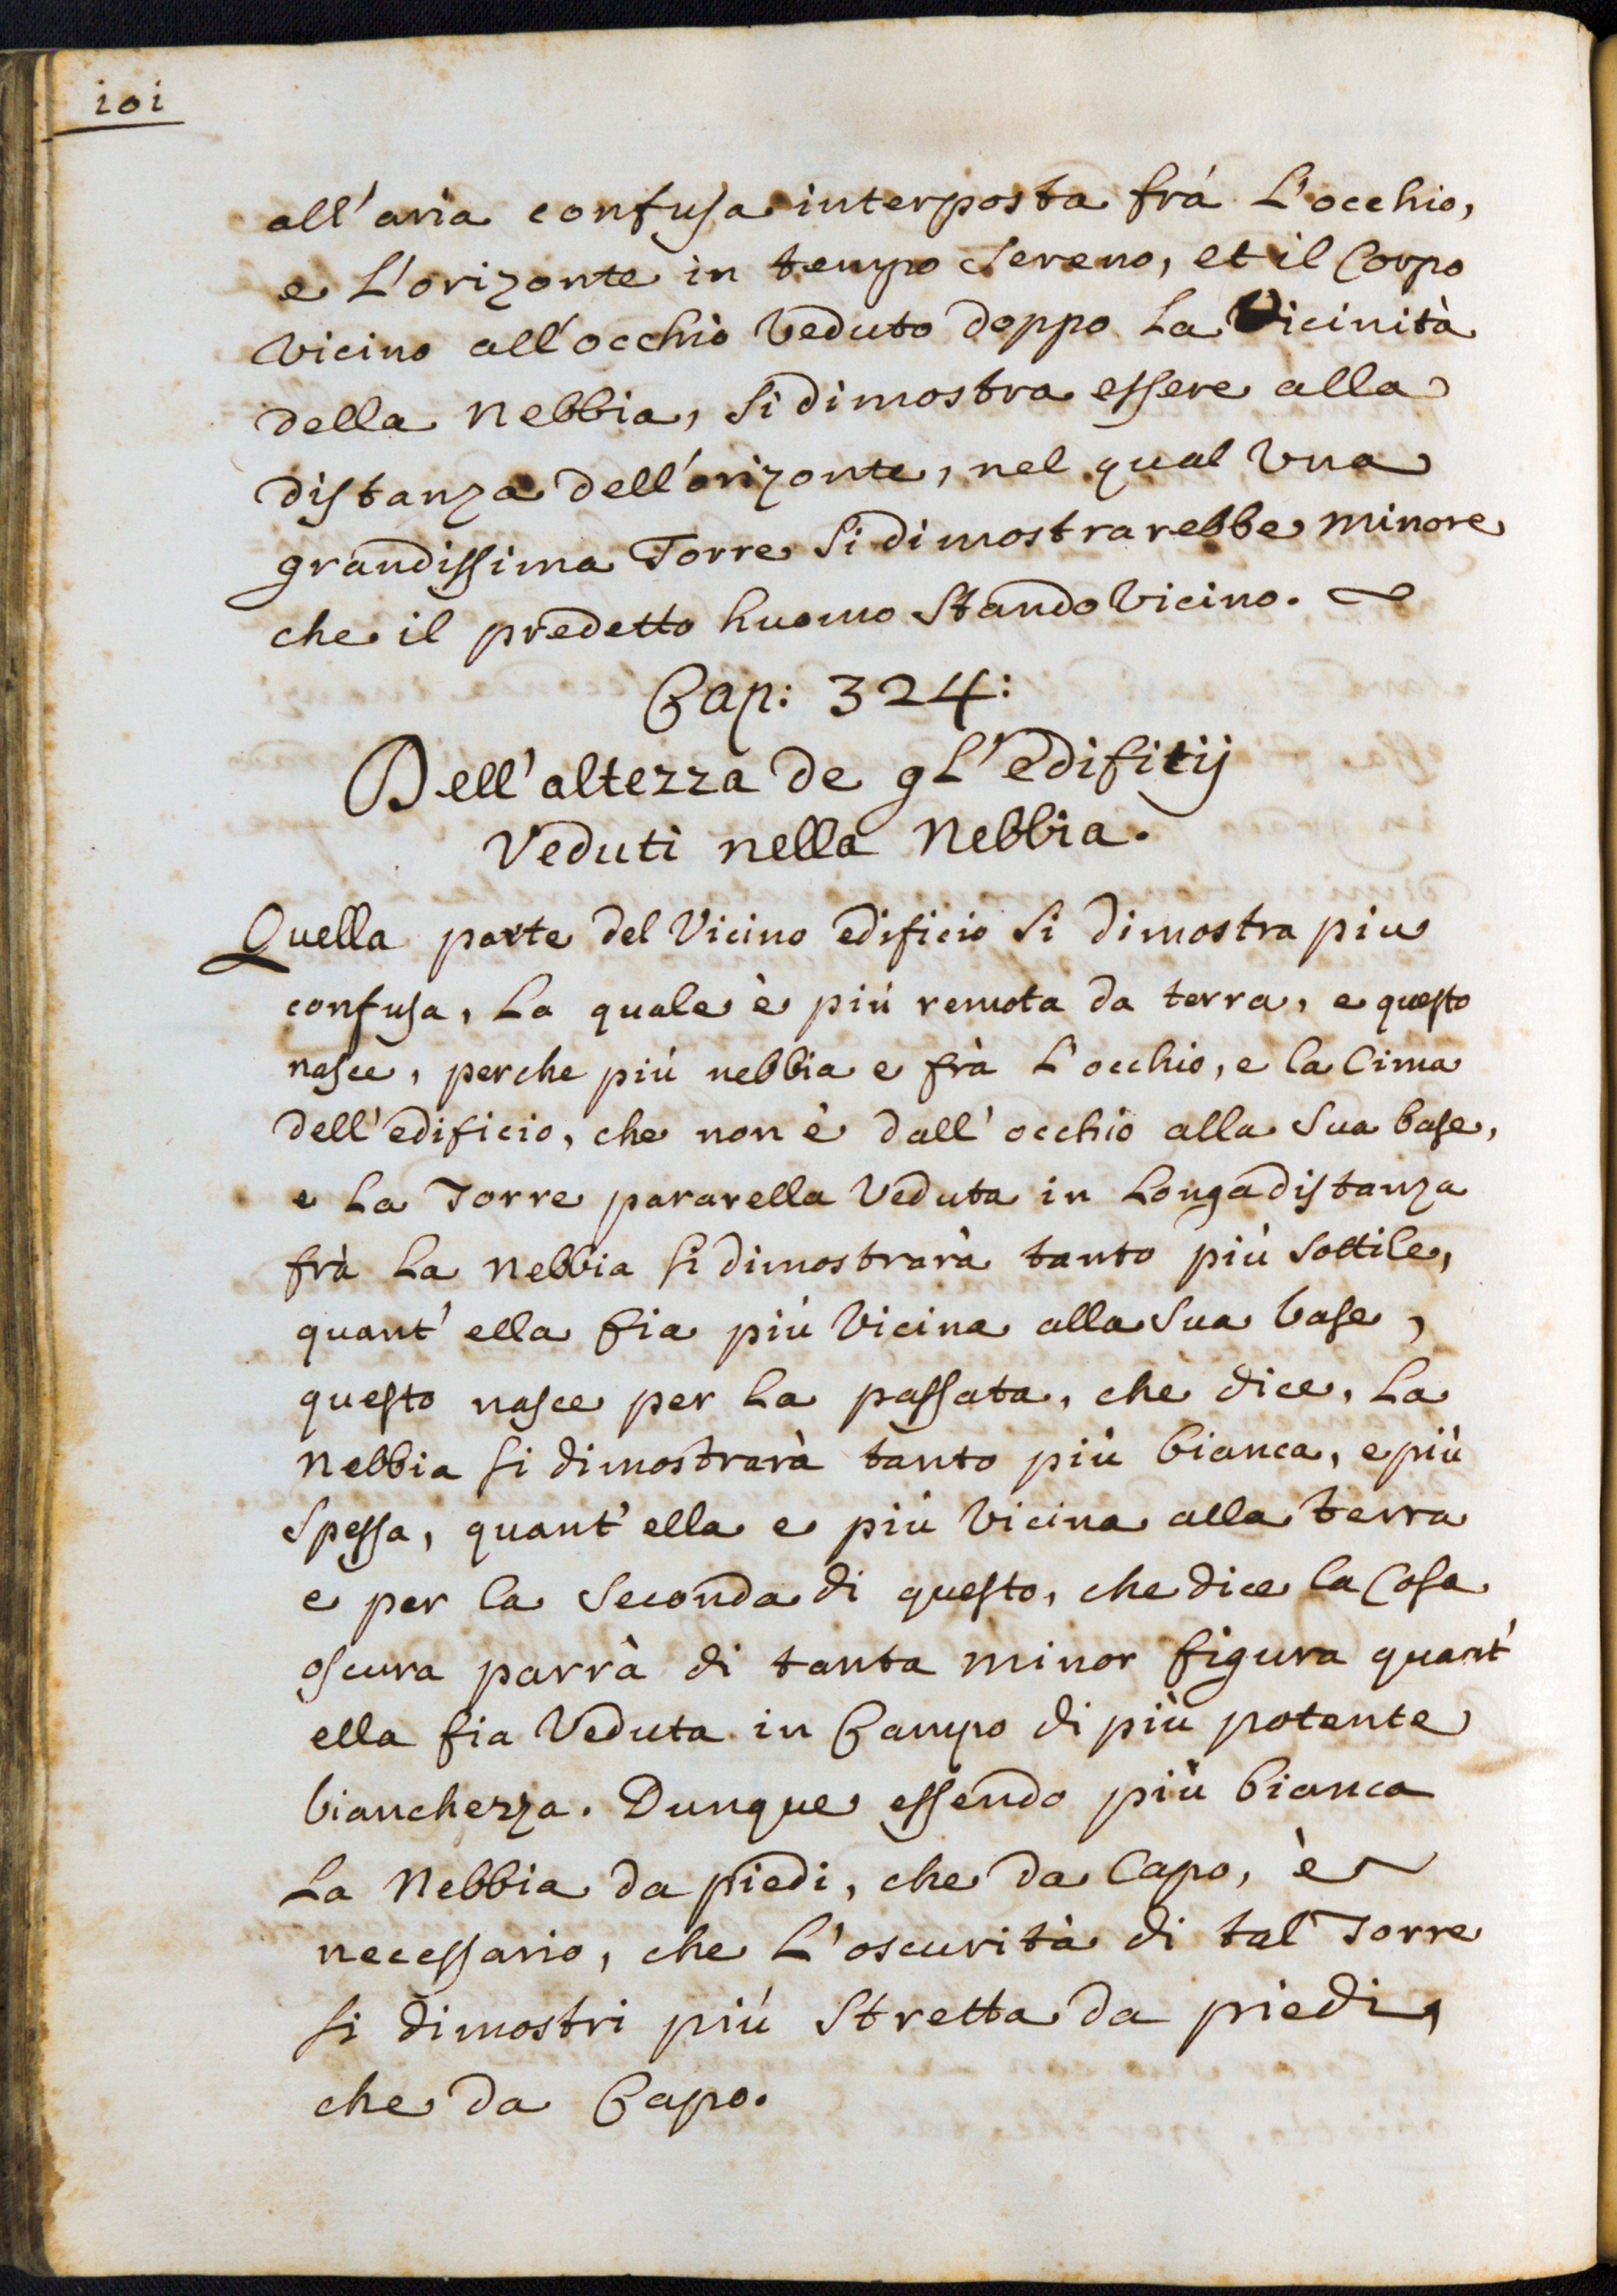 101
all'aria confusa interposta frá L'occhio,
e L'orizonte in tempo sereno, et il Corpo
vicino all'occhio veduto doppo La Vicinità
della Nebbia, si dimostra essere alla
distanza dell'orizonte, nel qual vna
grandissima Torre si dimostrarebbe minore
che il predetto huomo stando vicino.
Cap: 324:
Dell'altezza de gL'edifitij
Veduti nella Nebbia.
Quella parte del Vicino edificio si dimostra piu
confusa, La quale è piú remota da terra, e questo
nasce, perche piú nebbia e frà L'occhio, e la Cima
dell'edificio, che non è dall'occhio alla sua base,
e La Torre pararella Veduta in Longa distanza
frà La Nebbia si dimostrarà tanto piú sottile,
quant'ella fia piú Vicina alla sua base,
questo nasce per La passata, che dice, La
Nebbia si dimostrarà tanto piú bianca, e piú
spessa, quant'ella e piú Vicina alla terra
e per la seconda di questo, che dice la Cosa
oscura parrà di tanta minor figura quant'
ella fia Veduta in Campo di più potente
bianchezza. Dunque essendo piú bianca
La Nebbia da piedi, che da Capo, è
necessario, che L'oscurità di tal Torre
si dimostri piú stretta da piedi,
che da Capo.